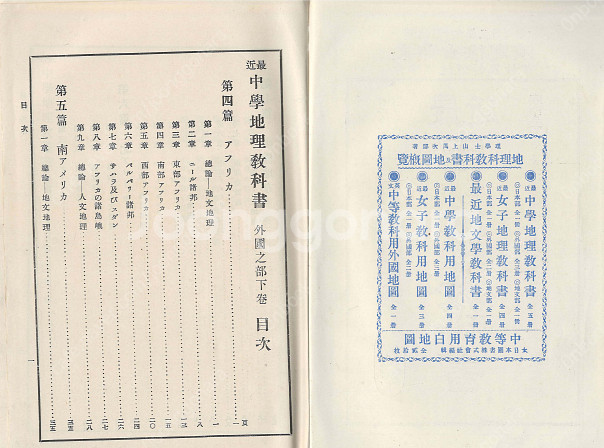 最近 中學地理敎科書 外國之部下卷 目次
第四篇 アフリカ 一頁
第一章 總論―地文地理 一
第二章 ニール諸邦 八
第三章 東部アフリカ
第四章 南部アフリカ
第五章 西部アフリカ 二〇
第六章 バルバリー諸邦 二四
第七章 サハラ及びスダン
第八章 アフリカの諸島嶼
第九章 總論―人文地理
第五篇 南アメリカ 三五
第一章 總論―地文地理 三五
目次
一
理學士山上萬次郎著
地理科敎科書及地圖槪覽
最近 中學地理敎科書 全五册
最近 女子地理敎科書 全四册
最近地文學敎科書 全一册
最近 中學敎科用地圖 全四册
最近 女子敎科用地圖 全三册
英文 中等敎科用外國地圖 全一册
中等敎育用白地圖
大日本圖書株式會社編輯 全貳拾枚